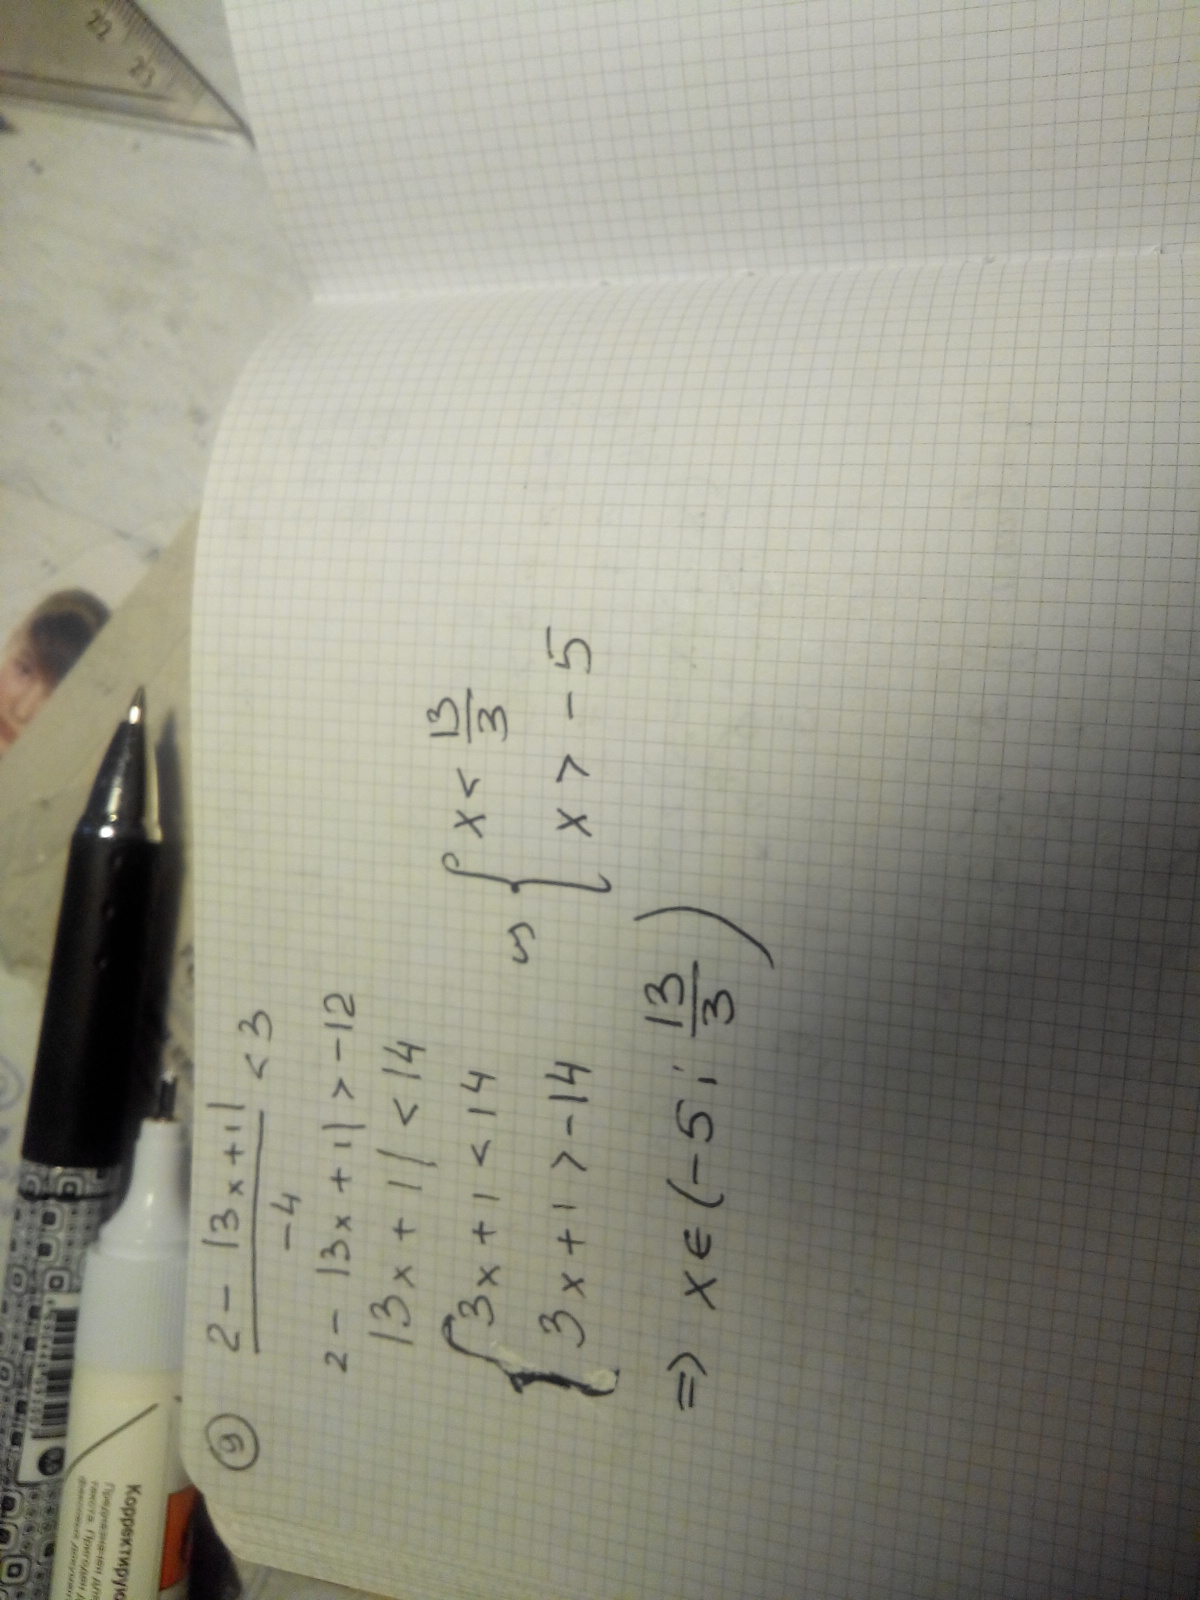 9
2 - |3x+1|
-4
< 3
2 - |3x+1| > -12
|3x+1| < 14
{ 3x+1 < 14
3x+1 > -14
⇔ { x < 13/3
x > -5
⇒ x ∈ (-5; 13/3)
22
23
Корректирую